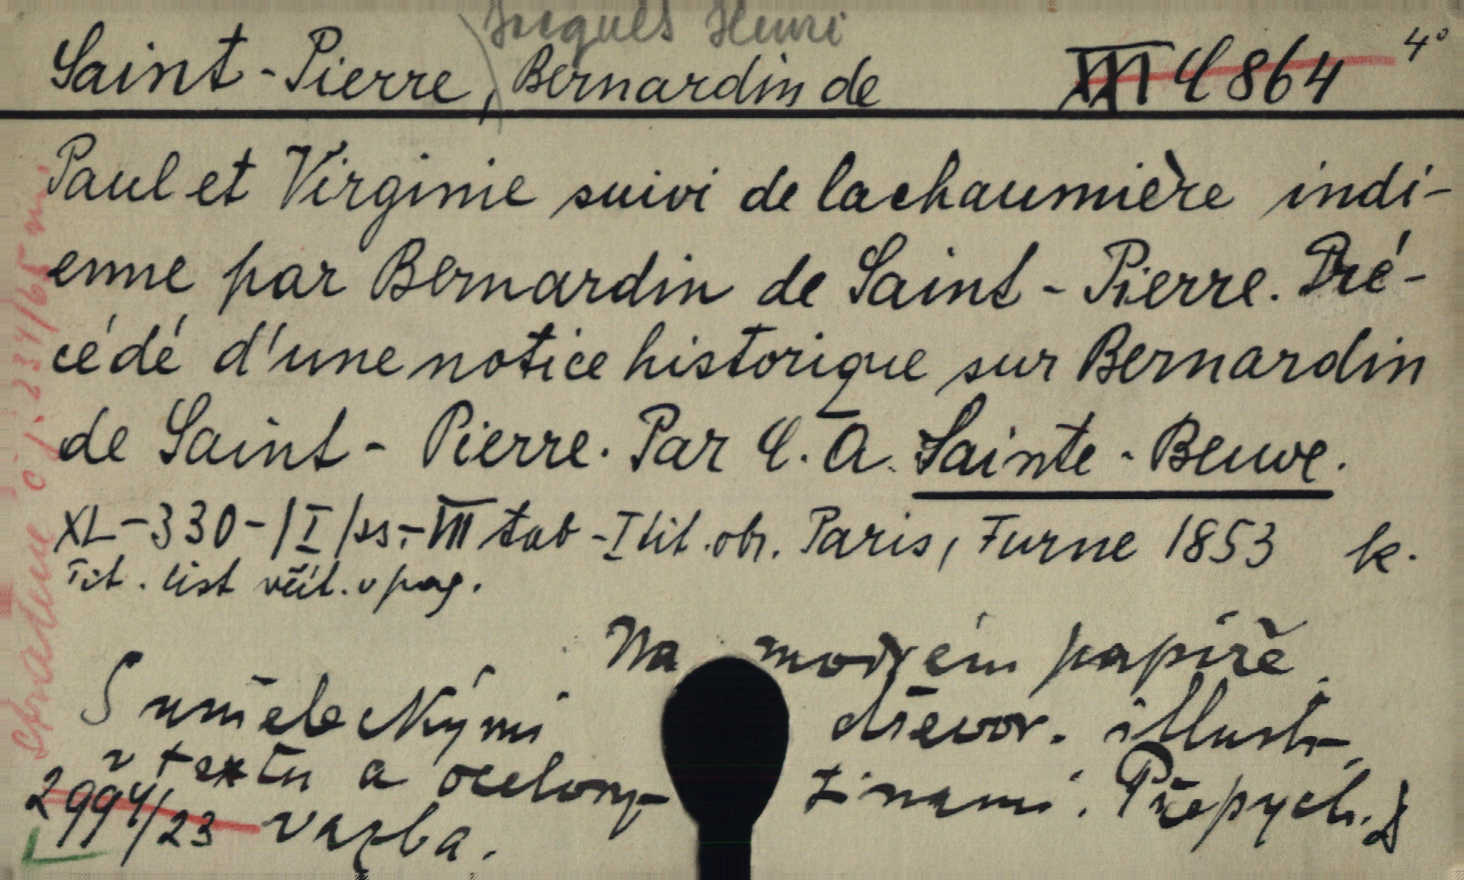 Jacques Henri
Saint-Pierre, Bernardin de
III C 864 4°
Paul et Virginie suivi de la chaumière indi-
enne par Bernardin de Saint-Pierre. Pré-
cédé d'une notice historique sur Bernardin
de Saint-Pierre. Par C. A. Sainte-Beuve.
XL-330-/I/ss.-VII tab-I tit.obr. Paris, Furne 1853 k.
Tit. list včít. v pag.
Na modrém papíře.
S uměleckými dřevor. illustr.
v textu a ocelory- tinami. Přepych.
2994/23 vazba.
čj. 234/65